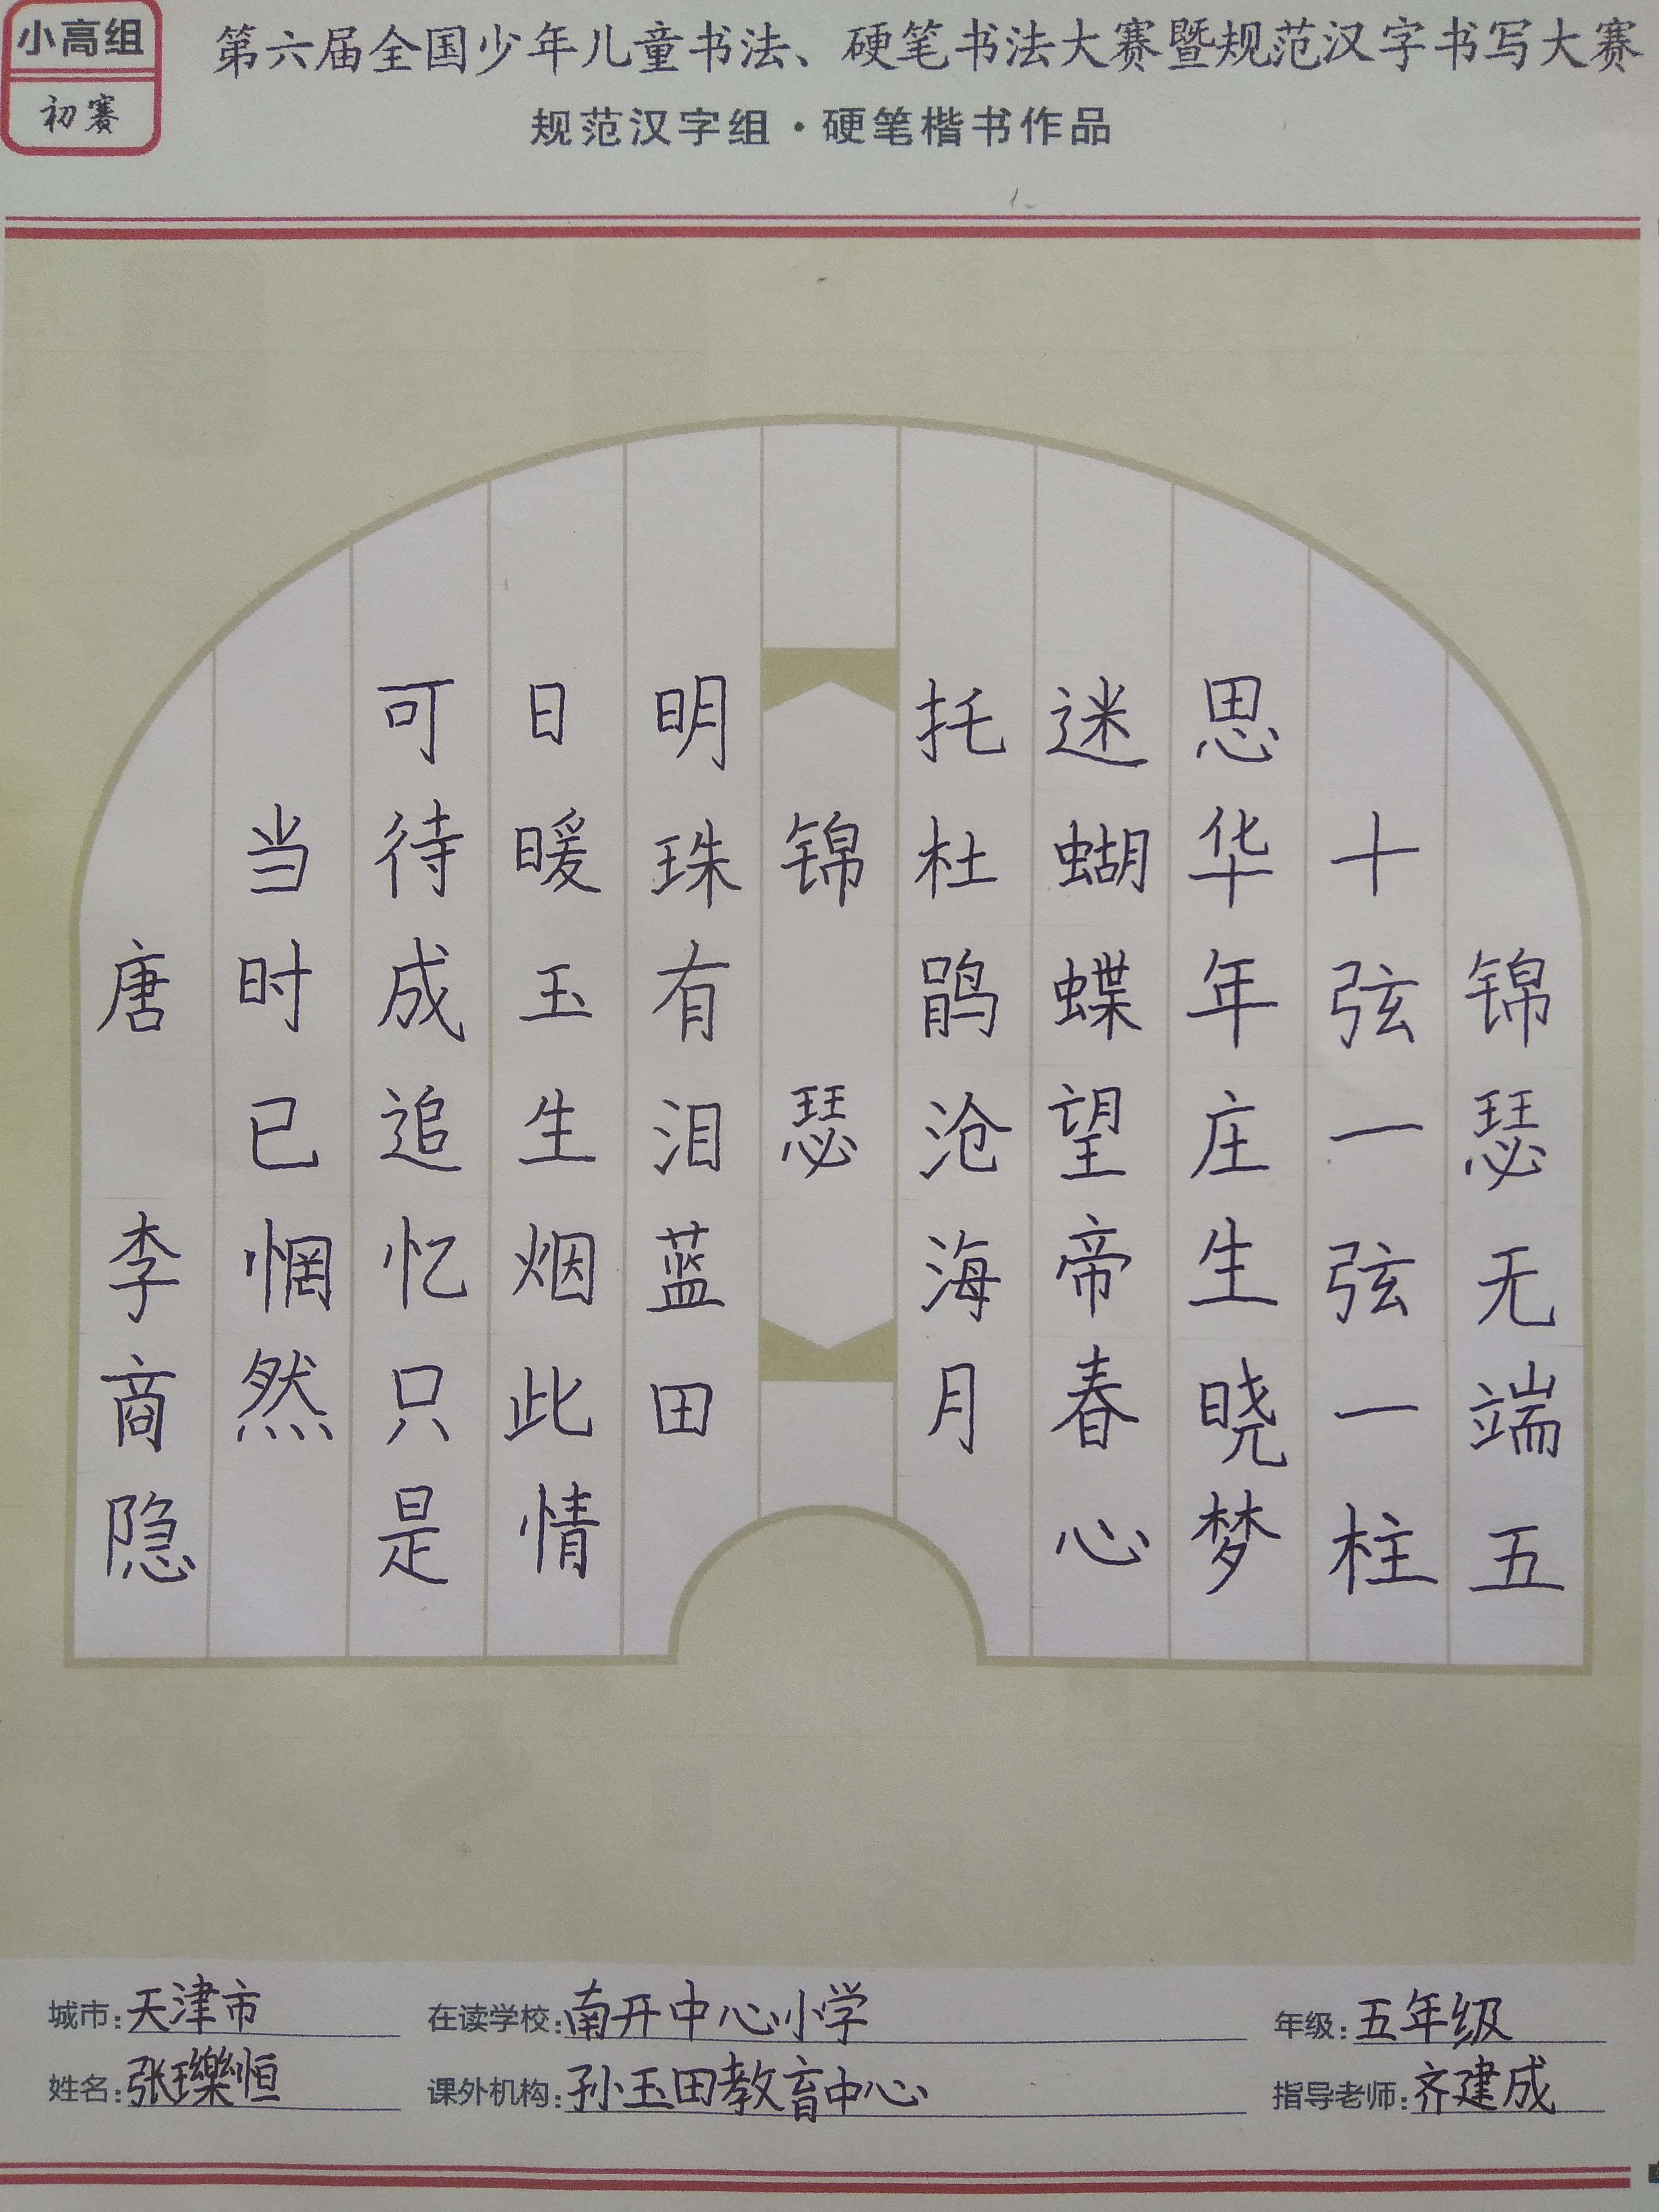 小高组
初赛
第六届全国少年儿童书法、硬笔书法大赛暨规范汉字书写大赛
规范汉字组·硬笔楷书作品
锦瑟无端五
十弦一弦一柱
思华年庄生晓梦
迷蝴蝶望帝春心
托杜鹃沧海月
锦瑟
明珠有泪蓝田
日暖玉生烟此情
可待成追忆只是
当时已惘然
唐 李商隐
城市:天津市 在读学校:南开中心小学 年级:五年级
姓名:张瓅恒 课外机构:孙玉田教育中心 指导老师:齐建成